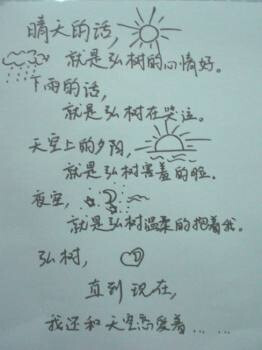 晴天的话，
就是弘树的心情好。
下雨的话，
就是弘树在哭泣。
天空上的夕阳，
就是弘树害羞的脸。
夜空，
就是弘树温柔的抱着我。
弘树，
直到现在，
我还和天空恋爱着……